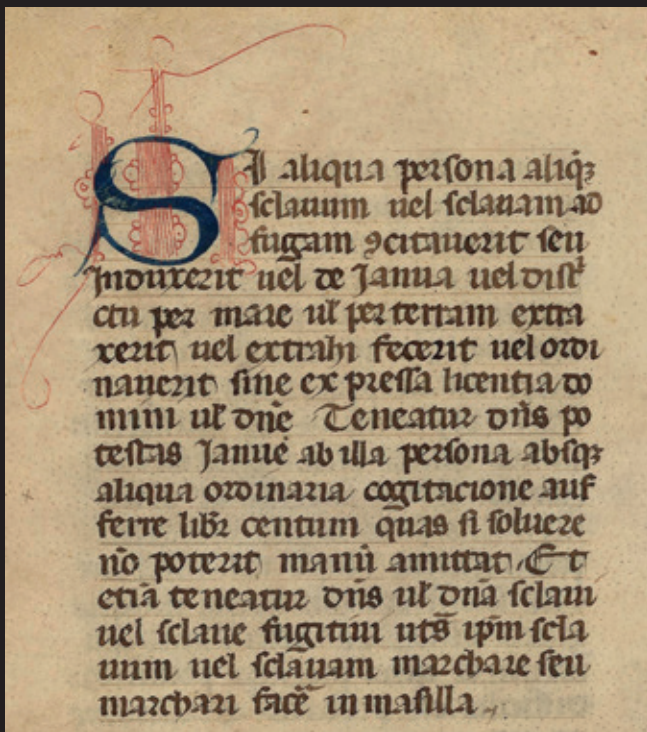 SI aliqua persona aliqȝ
sclauum uel sclauam ad
fugam ꝯcitauerit seu
induxerit uel de Janua uel dist͛
ctu per mare ul̃ per terram extra
xerit uel extrahi fecerit uel ordi
nauerit sine expressa licentia do
mini ul̃ dñe Teneatur dñs po
testas Janue ab illa persona absqȝ
aliqua ordinaria cogitacione auf
ferre libꝛ centum quas si soluere
nõ poterit manũ amittat Et
etiã teneatur dñs ul̃ dñã sclaui
uel sclaue fugitiui ut̃s ip̃m scla
uum uel sclauam marchare seu
marchari facẽ in masilla